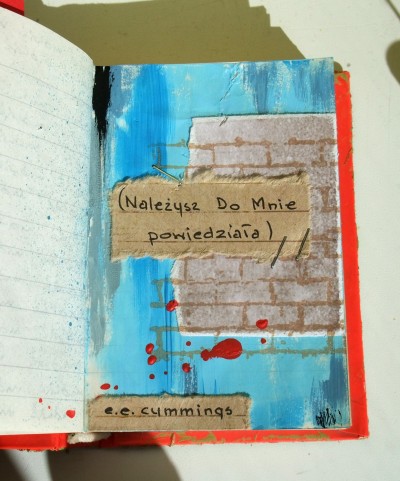 (Należysz Do Mnie
powiedziała)
e.e. cummings